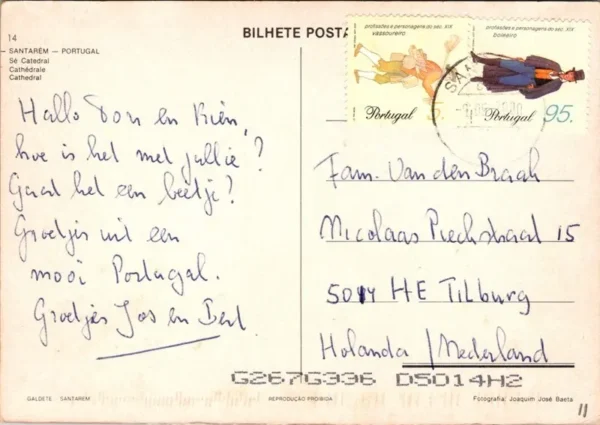 14
BILHETE POSTA
SANTARÉM — PORTUGAL
Sé Catedral
Cathédrale
Cathedral
profissões e personagens do séc. XIX
vassoureiro
Portugal
profissões e personagens do séc. XIX
boieiro
Portugal 95.
Hallo Ton en Riën,
hoe is het met jullie?
Gaat het een beetje?
Groetjes uit een
mooi Portugal.
Groetjes Jos en Bert
Fam. Van den Braak
Nicolaas Piechstraat 15
5014 HE TILburg
Holanda / Nederland
G267G336 D5014H2
GALDETE SANTARÉM
REPRODUÇÃO PROIBIDA
Fotografia: Joaquim José Baeta
11